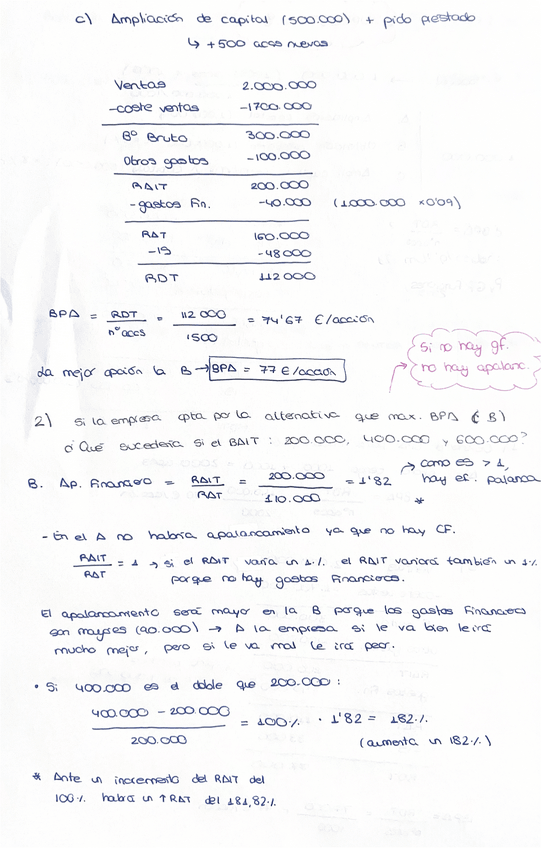 c) Ampliación de capital (500.000) + pido prestado
↳ +500 accs nuevas
Ventas 2.000.000
-coste ventas -1700.000
Bº Bruto 300.000
Otros gastos -100.000
RAIT 200.000
- gastos Fin. -40.000 (1.000.000 x0'09)
RAT 160.000
-IS -48000
RDT 112000
BPA = RDT / nº accs = 112000 / 1500 = 74'67 €/acción
La mejor opción la B → BPA = 77 €/acción
Si no hay gf.
no hay apalanc.
2) si la empresa opta por la alternativa que max. BPA (B)
¿Qué sucedería si el BAIT: 200.000, 400.000 y 600.000?
B. Ap. Financiero = RAIT / RAT = 200.000 / 110.000 = 1'82 → como es > 1, hay ef. palanca *
- En el A no habría apalancamiento ya que no hay CF.
RAIT / RAT = 1 → si el RAIT varía un 1% el RAIT variará también un 1%
porque no hay gastos financieros.
El apalancamiento será mayor en la B porque los gastos financieros
son mayores (90.000) → A la empresa si le va bien le irá
mucho mejor, pero si le va mal le irá peor.
• Si 400.000 es el doble que 200.000:
400.000 - 200.000 / 200.000 = 100% · 1'82 = 182%
(aumenta un 182%)
* Ante un incremento del RAIT del
100% habrá un ↑ RAT del 181,82%